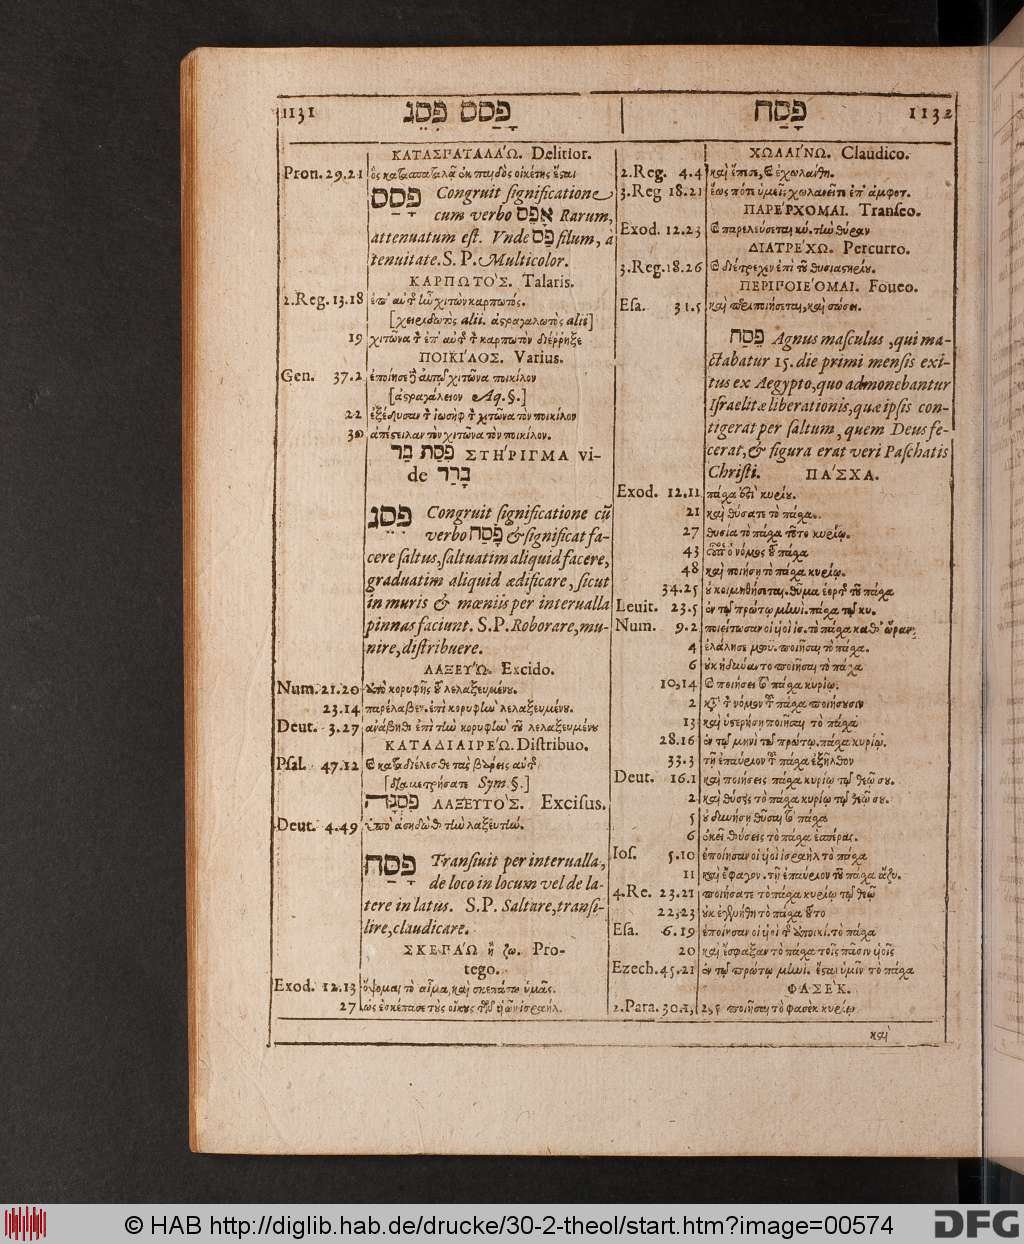 1131 פָּסַס פִּסֵּג
פָּסַח 1132
ΚΑΤΑΣΠΑΤΑΛΑΏ. Delitior.
Prou. 29.21 ὃς κατασπαταλᾷ ἐκ παιδὸς οἰκέτης ἔσται
פָּסַס Congruit significatione
cum verbo אָפֵס Rarum,
attenuatum est. Vnde פַּס filum, à
tenuitate. S. P. Multicolor.
ΚΑΡΠΩΤΟΣ. Talaris.
2.Reg. 13.18 ἐπ' αὐτ ἦν χιτὼν καρπωτός.
[χειριδωτὸς alii. ἀστραγαλωτὸς alii]
19 χιτῶνα τ ἐπ' αὐτ τ καρπωτὸν διέρρηξε
ΠΟΙΚΙΛΟΣ. Varius.
Gen. 37.2 ἐποίησε χιτῶνα ποικίλον
[ἀστραγάλειον Aq.§.]
22 ἐξέδυσαν τ ἰωσὴφ τ χιτῶνα τὸν ποικίλον
30 ἀπέστειλαν τὸν χιτῶνα τὸν ποικίλον.
פִּסַּת בַּר ΣΤΗΡΙΓΜΑ vi-
de בָּרַר
פִּסֵּג Congruit significatione cū
verbo פָּסַח & significat fa-
cere saltus, saltuatim aliquid facere,
graduatim aliquid ædificare, sicut
in muris & mœniis per interualla
pinnas faciunt. S.P. Roborare, mu-
nire, distribuere.
ΛΑΞΕΥΏ. Excido.
Num. 21.20 ἀπὸ κορυφῆς τ λελαξευμένου.
23.14 παρέλαβεν. ἐπὶ κορυφὴν λελαξευμένου.
Deut. 3.27 ἀνάβηθι ἐπὶ τὴν κορυφὴν τοῦ λελαξευμένου
ΚΑΤΑΔΙΑΙΡΕΏ. Distribuo.
Psal. 47.12 καταδιέλεσθε τὰς βάρεις αὐτ
[διαμετρήσατε Sym §.]
פִּסְגָּה ΛΑΞΕΥΤΟΣ. Excisus.
Deut. 4.49 ὑπὸ ἀσηδὼθ τὴν λαξευτήν.
פָּסַח Transiuit per interualla,
de loco in locum vel de la-
tere in latus. S.P. Saltare, transi-
lire, claudicare.
ΣΚΕΠΑΏ ἢ ζω. Pro-
tego.
Exod. 12.13 ὄψομαι τὸ αἷμα, καὶ σκεπάσω ὑμᾶς.
27 ὡς ἐσκέπασε τοὺς οἴκους τῶν υἱῶν ἰσραήλ.
ΧΩΛΑΙΝΩ. Claudico.
2.Reg. 4.4 καὶ ἔπεσε, καὶ ἐχωλάνθη.
3.Reg 18.21 ἕως πότε ὑμεῖς χωλανεῖτε ἐπ' ἀμφοτ.
ΠΑΡΕΡΧΟΜΑΙ. Transeo.
Exod. 12.23 καὶ παρελεύσεται κύ. τὴν θύραν
ΔΙΑΤΡΕΧΩ. Percurro.
3.Reg. 18.26 καὶ διέτρεχον ἐπὶ τοῦ θυσιαστηρίου.
ΠΕΡΙΠΟΙΕΟΜΑΙ. Foueo.
Esa. 31.5 καὶ περιποιήσεται, καὶ σώσει.
פֶּסַח Agnus masculus, qui ma-
ctabatur 15. die primi mensis exi-
tus ex Aegypto, quo admonebantur
Israelitæ liberationis, quæ ipsis con-
tigerat per saltum, quem Deus fe-
cerat, & figura erat veri Paschatis
Christi. ΠΑΣΧΑ.
Exod. 12.11 πάσχα ἐστὶ κυρίου.
21 καὶ θύσατε τὸ πάσχα.
27 θυσία τὸ πάσχα τοῦτο κυρίῳ.
43 οὗτος ὁ νόμος τ πάσχα
48 καὶ ποιήσῃ τὸ πάσχα κυρίῳ.
34.25 οὐ κοιμηθήσεται. θῦμα ἑορτ τοῦ πάσχα
Leuit. 23.5 ἐν τῷ πρώτῳ μηνὶ. πάσχα τῷ κυ.
Num. 9.2 ποιείτωσαν οἱ υἱοὶ ισ. τὸ πάσχα καθ' ὥραν
4 ἐλάλησε μωυ. ποιῆσαι τὸ πάσχα.
6 οὐκ ἠδύναντο ποιῆσαι τὸ πάσχα
10,14 καὶ ποιήσει τὸ πάσχα κυρίῳ.
2 κατ τ νόμον τ πάσχα ποιήσουσιν
13 καὶ ὑστερήσῃ ποιῆσαι τὸ πάσχα
28.16 ἐν τῷ μηνὶ τῷ πρώτῳ. πάσχα κυρίῳ.
33.3 τῇ ἐπαύριον τ πάσχα ἐξῆλθον
Deut. 16.1 καὶ ποιήσεις πάσχα κυρίῳ τῷ θεῷ σου.
2 καὶ θύσεις τὸ πάσχα κυρίῳ τῷ θεῷ σου.
5 οὐ δυνήσῃ θῦσαι τὸ πάσχα
6 ἐκεῖ θύσεις τὸ πάσχα ἑσπέρας.
Ios. 5.10 ἐποίησαν οἱ υἱοὶ ἰσραὴλ τὸ πάσχα
11 καὶ ἔφαγον. τῇ ἐπαύριον τοῦ πάσχα ἄζυ.
4.Re. 23.21 ποιήσατε τὸ πάσχα κυρίῳ τῷ θεῷ
22,23 οὐκ ἐγενήθη τὸ πάσχα τοῦτο
Esa. 6.19 ἐποίησαν οἱ υἱοὶ τ ἀποικι. τὸ πάσχα
20 καὶ ἔσφαξαν τὸ πάσχα τοῖς πᾶσιν υἱοῖς
Ezech. 45.21 ἐν τῷ πρώτῳ μηνὶ. ἔσται ὑμῖν τὸ πάσχα
ΦΑΣΕΚ.
2.Para. 30.1, 2,5 ποιῆσαι τὸ φασὲκ κυρίῳ
καὶ
© HAB http://diglib.hab.de/drucke/30-2-theol/start.htm?image=00574
DFG